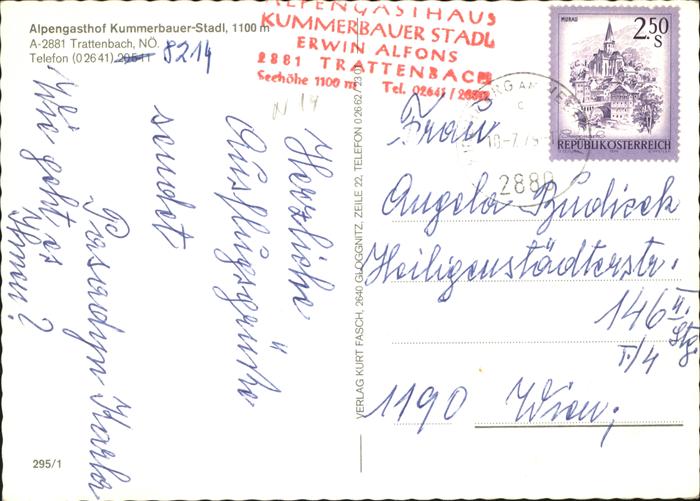 Alpengasthof Kummerbauer-Stadl, 1100 m
A-2881 Trattenbach, NÖ.
Telefon (0 26 41) 205 11 8214
ALPENGASTHAUS
KUMMERBAUER STADL
ERWIN ALFONS
2881 TRATTENBACH
Seehöhe 1100 m Tel. 02641/
N 14
MURAU
2.50
S
REPUBLIK ÖSTERREICH
10-7.79
2880
Herzliche
Ausflugsgrüße
sendet
Karla
Wie geht es
Ihnen?
Frau
Angela Budisek
Heiligenstädterstr.
146 II.
Stg.
I/4
1190 Wien;
VERLAG KURT FASCH, 2640 GLOGGNITZ, ZEILE 22, TELEFON 0 26 62 / 23 01
295/1